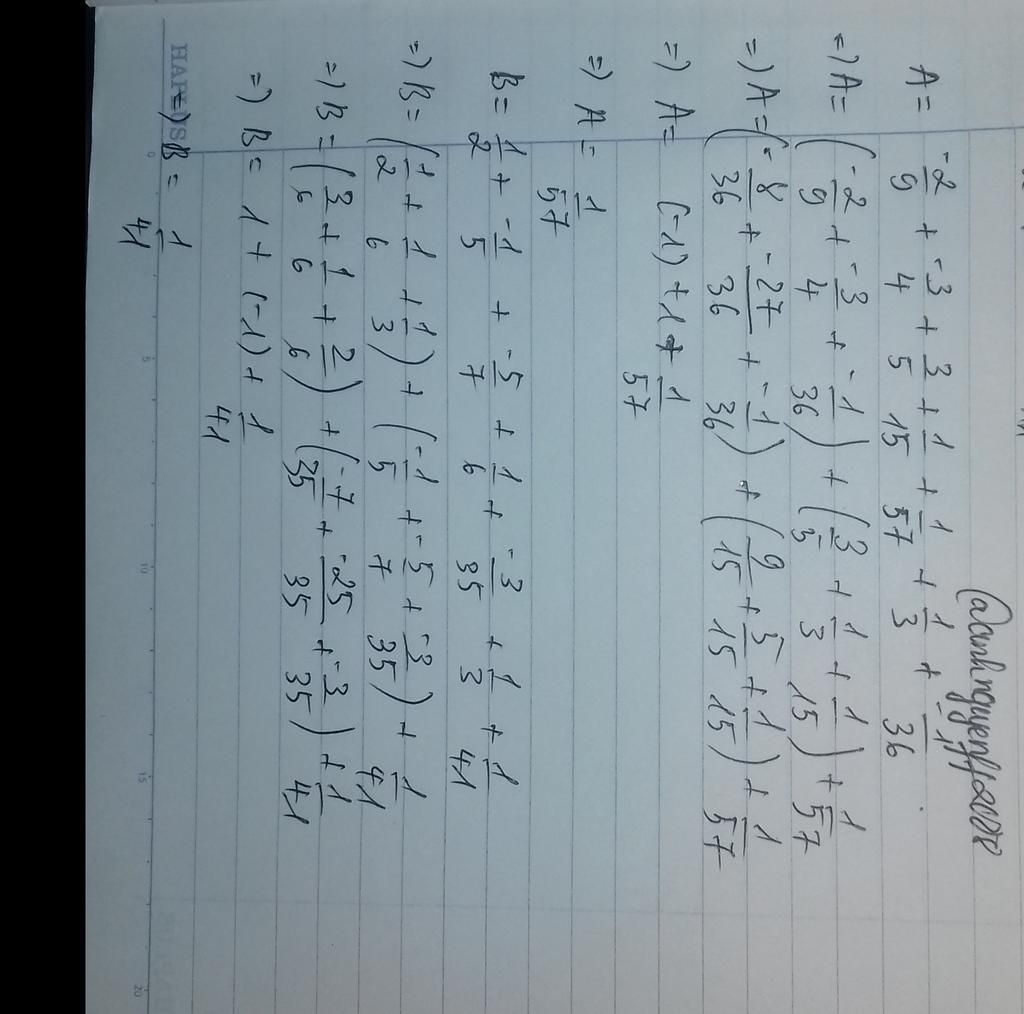 @anhnguyenff2008
A = -2/9 + -3/4 + 3/5 + 1/15 + 1/57 + 1/3 + -1/36
=) A = (-2/9 + -3/4 + -1/36) + (3/5 + 1/3 + 1/15) + 1/57
=) A = (-8/36 + -27/36 + -1/36) + (9/15 + 5/15 + 1/15) + 1/57
=) A = (-1) + 1 + 1/57
=) A = 1/57
B = 1/2 + -1/5 + -5/7 + 1/6 + -3/35 + 1/3 + 1/41
=) B = (1/2 + 1/6 + 1/3) + (-1/5 + -5/7 + -3/35) + 1/41
=) B = (3/6 + 1/6 + 2/6) + (-7/35 + -25/35 + -3/35) + 1/41
=) B = 1 + (-1) + 1/41
=) B = 1/41
0 5 10 15 20